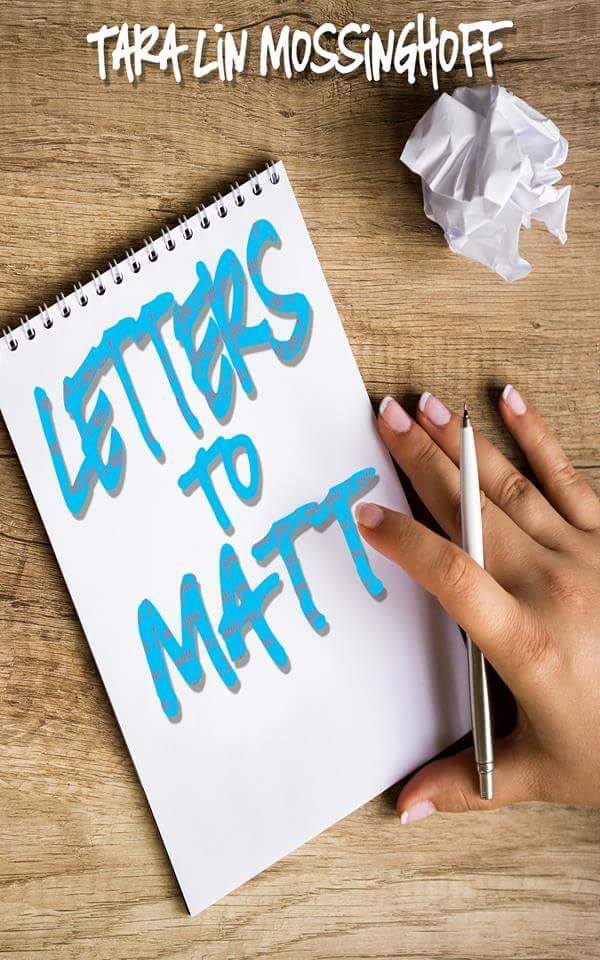 TARA LIN MOSSINGHOFF
LETTERS
TO
MATT